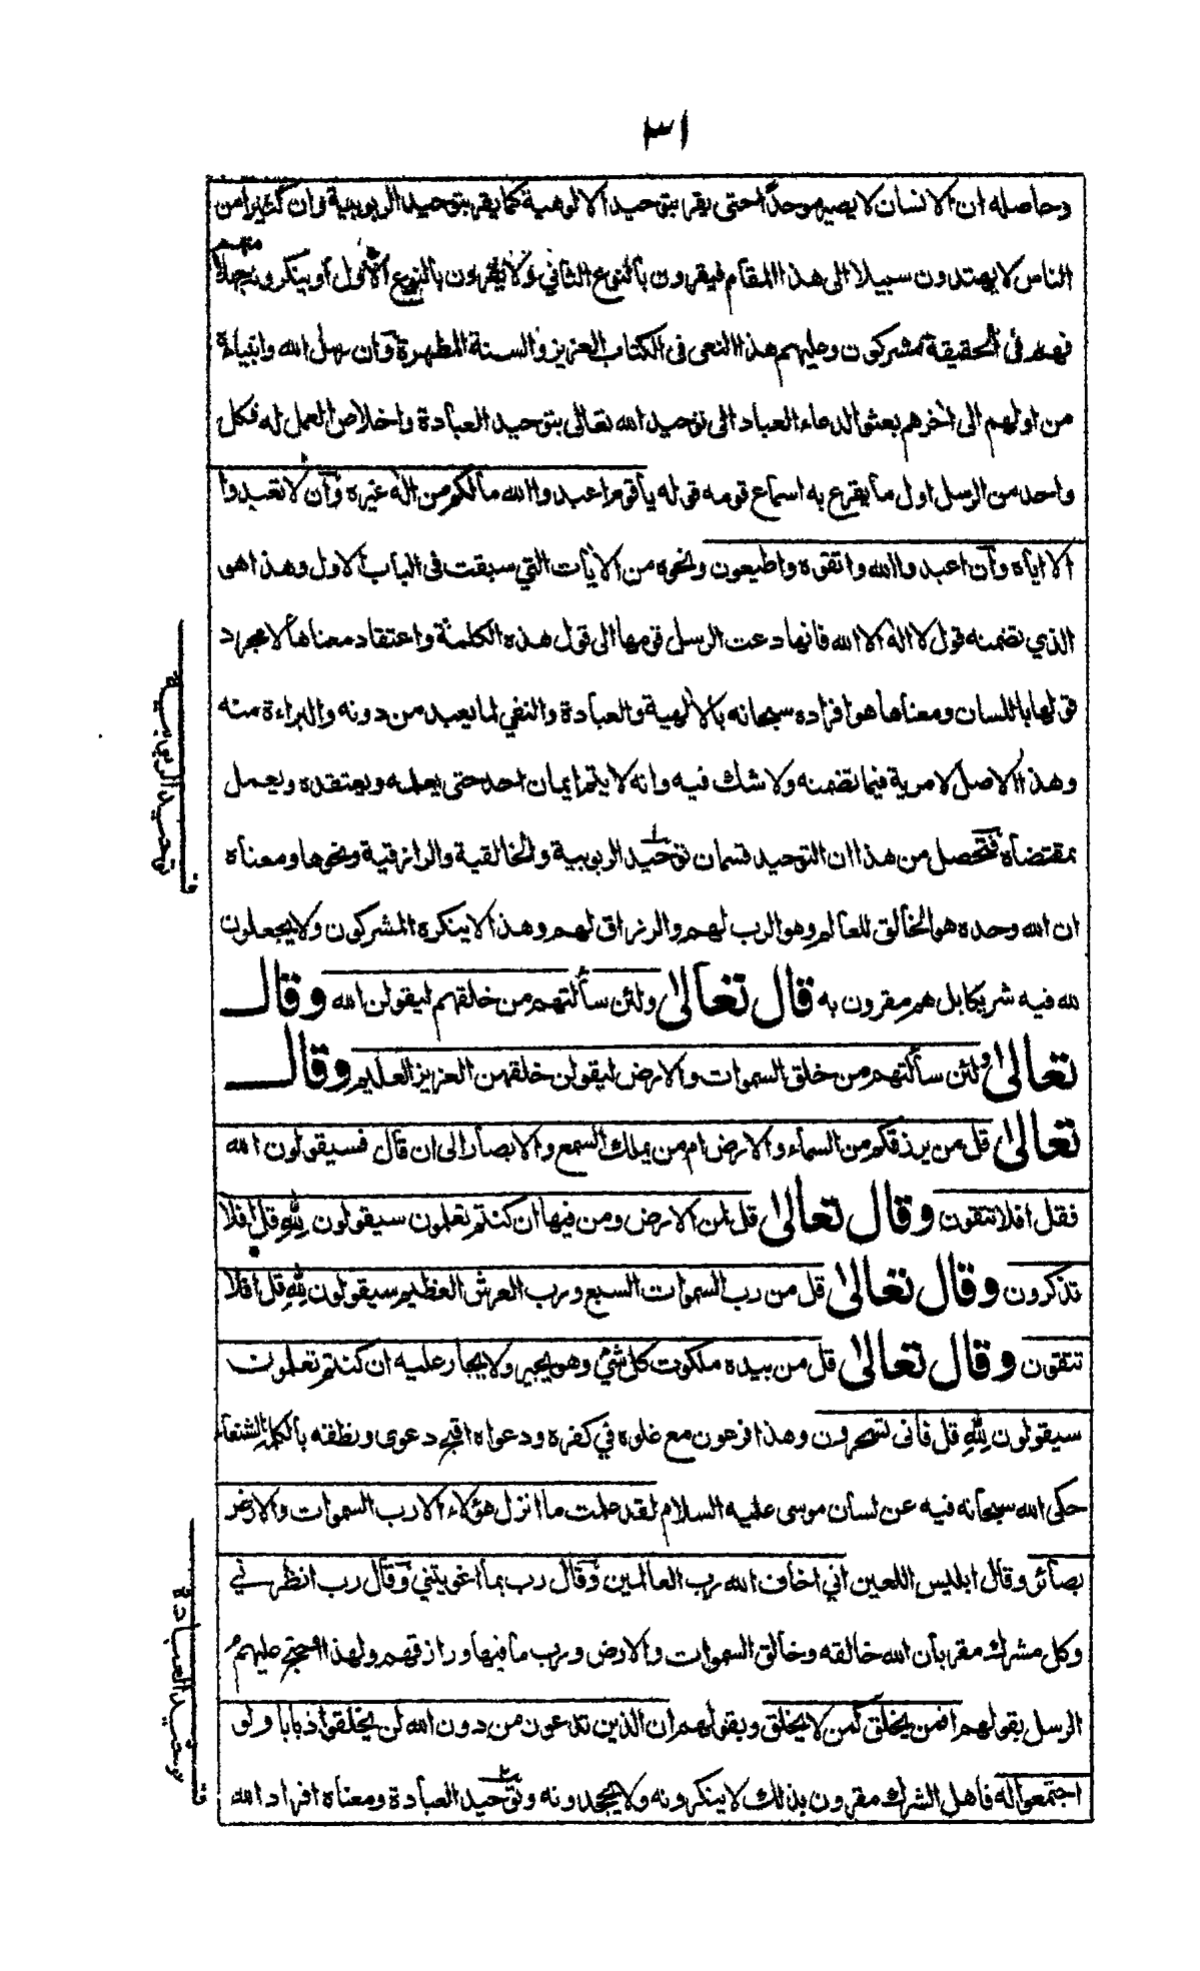 ٣١
وحاصله ان الانسان لا يصير موحدًا حتى يقر بتوحيد الالوهية كما يقر بتوحيد الربوبية وان كثيرا من
الناس لا يهتدون سبيلا الى هذا المقام فيقرون بالنوع الثاني ولا يقرون بالنوع الاول او ينكرونه جهلا منهم
فهم في الحقيقة مشركون وعليهم هذا النعى فى الكتاب العزيز والسنة المطهرة وان رسل الله وانبياءه
من اولهم الى اخرهم بعثوا لدعاء العباد الى توحيد الله تعالى بتوحيد العبادة واخلاص العمل له فكل
واحد من الرسل اول ما يقرع به اسماع قومه قوله يا قوم اعبدوا الله ما لكم من اله غيره وأن لا تعبدوا
الا اياه وأن اعبدوا الله واتقوه واطيعون ونحوه من الأيات التي سبقت فى الباب الاول وهذا هو
الذي تضمنه قول لا اله الا الله فانها دعت الرسل قومها الى قول هذه الكلمة واعتقاد معناها لا مجرد
قولها باللسان ومعناها هو افراده سبحانه بالالهية والعبادة والنفي لما يعبد من دونه والبراءة منه
وهذا الاصل لا مرية فيما تضمنه ولا شك فيه وانه لا يتم ايمان احد حتى يعلمه ويعتقده ويعمل
بمقتضاه فتحصل من هذا ان التوحيد قسمان توحيد الربوبية والخالقية والرازقية ونحوها ومعناه
ان الله وحده هو الخالق للعالم وهو الرب لهم والرزاق لهم وهذا لا ينكره المشركون ولا يجعلون
لله فيه شريكا بل هم مقرون به قال تعالى ولئن سألتهم من خلقهم ليقولن الله وقال
تعالى ولئن سألتهم من خلق السموات والارض ليقولن خلقهن العزيز العليم وقال
تعالى قل من يرزقكم من السماء والارض ام من يملك السمع والابصار الى ان قال فسيقولون الله
فقل افلا تتقون وقال تعالى قل لمن الارض ومن فيها ان كنتم تعلمون سيقولون لله قل افلا
تذكرون وقال تعالى قل من رب السموات السبع ورب العرش العظيم سيقولون لله قل افلا
تتقون وقال تعالى قل من بيده ملكوت كل شئ وهو يجير ولا يجار عليه ان كنتم تعلمون
سيقولون لله قل فانى تسحرون وهذا فرعون مع غلوه في كفره ودعواه اقبح دعوى ونطقه بالكلمة الشنعاء
حكى الله سبحانه فيه عن لسان موسى عليه السلام لقد علمت ما انزل هؤلاء الا رب السموات والارض
بصائر وقال ابليس اللعين اني اخاف الله رب العالمين وقال رب بما اغويتني وقال رب انظرني
وكل مشرك مقر بان الله خالقه وخالق السموات والارض ورب ما فيها ورازقهم ولهذا احتج عليهم
الرسل بقولهم افمن يخلق كمن لا يخلق وبقولهم ان الذين تدعون من دون الله لن يخلقوا ذبابا ولو
اجتمعوا له فاهل الشرك مقرون بذلك لا ينكرونه ولا يجحدونه وتوحيد العبادة ومعناه افراد الله
ف توحيد الربوبية
ف توحيد العبادة